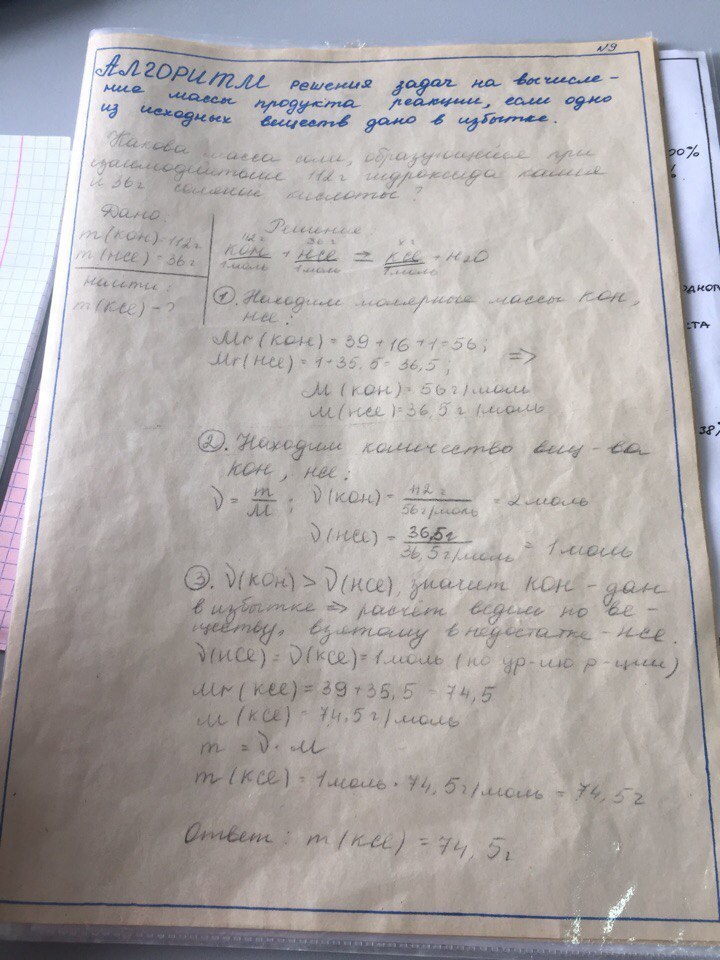 №9
АЛГОРИТМ решения задач на вычисле-
ние массы продукта реакции, если одно
из исходных веществ дано в избытке.
Какова масса соли, образующейся при
взаимодействии 112 г гидроксида калия
и 36 г соляной кислоты?
Дано:
m(KOH)=112г
m(HCl)=36г
найти:
m(KCl)-?
Решение:
112г 36г xг
KOH + HCl => KCl + H2O
1моль 1моль 1моль
1. Находим молярные массы KOH,
HCl:
Mr(KOH)=39+16+1=56;
Mr(HCl)=1+35,5=36,5; =>
M(KOH)=56г/моль
M(HCl)=36,5г/моль
2. Находим количество вещ-ва
KOH, HCl:
ν=m/M; ν(KOH)=112г/56г/моль=2моль
ν(HCl)=36,5г/36,5г/моль=1моль
3. ν(KOH)>ν(HCl), значит KOH-дан
в избытке => расчет ведем по ве-
ществу, взятому в недостатке-HCl.
ν(HCl)=ν(KCl)=1моль (по ур-ию р-ции)
Mr(KCl)=39+35,5=74,5
M(KCl)=74,5г/моль
m=ν·M
m(KCl)=1моль·74,5г/моль=74,5г
Ответ: m(KCl)=74,5г
00%
%
ста
38%